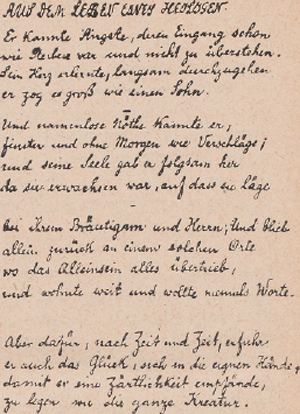 AUS DEM LEBEN EINES HEILIGEN.
Er kannte Ängste, deren Eingang schon
wie Sterben war und nicht zu überstehen.
Sein Herz erlernte, langsam durchzugehen
er zog es groß wie einen Sohn.
Und namenlose Nöthe kannte er,
finster und ohne Morgen wie Verschläge;
und seine Seele gab er folgsam her
da sie erwachsen war, auf dass sie läge
bei ihrem Bräutigam und Herrn; Und blieb
allein zurück an einem solchen Orte
wo das Alleinsein alles übertrieb,
und wohnte weit und wollte niemals Worte.
Aber dafür, nach Zeit und Zeit, erfuhr
er auch das Glück, sich in die eignen Hände,
damit er eine Zärtlichkeit empfände,
zu legen wie die ganze Kreatur.